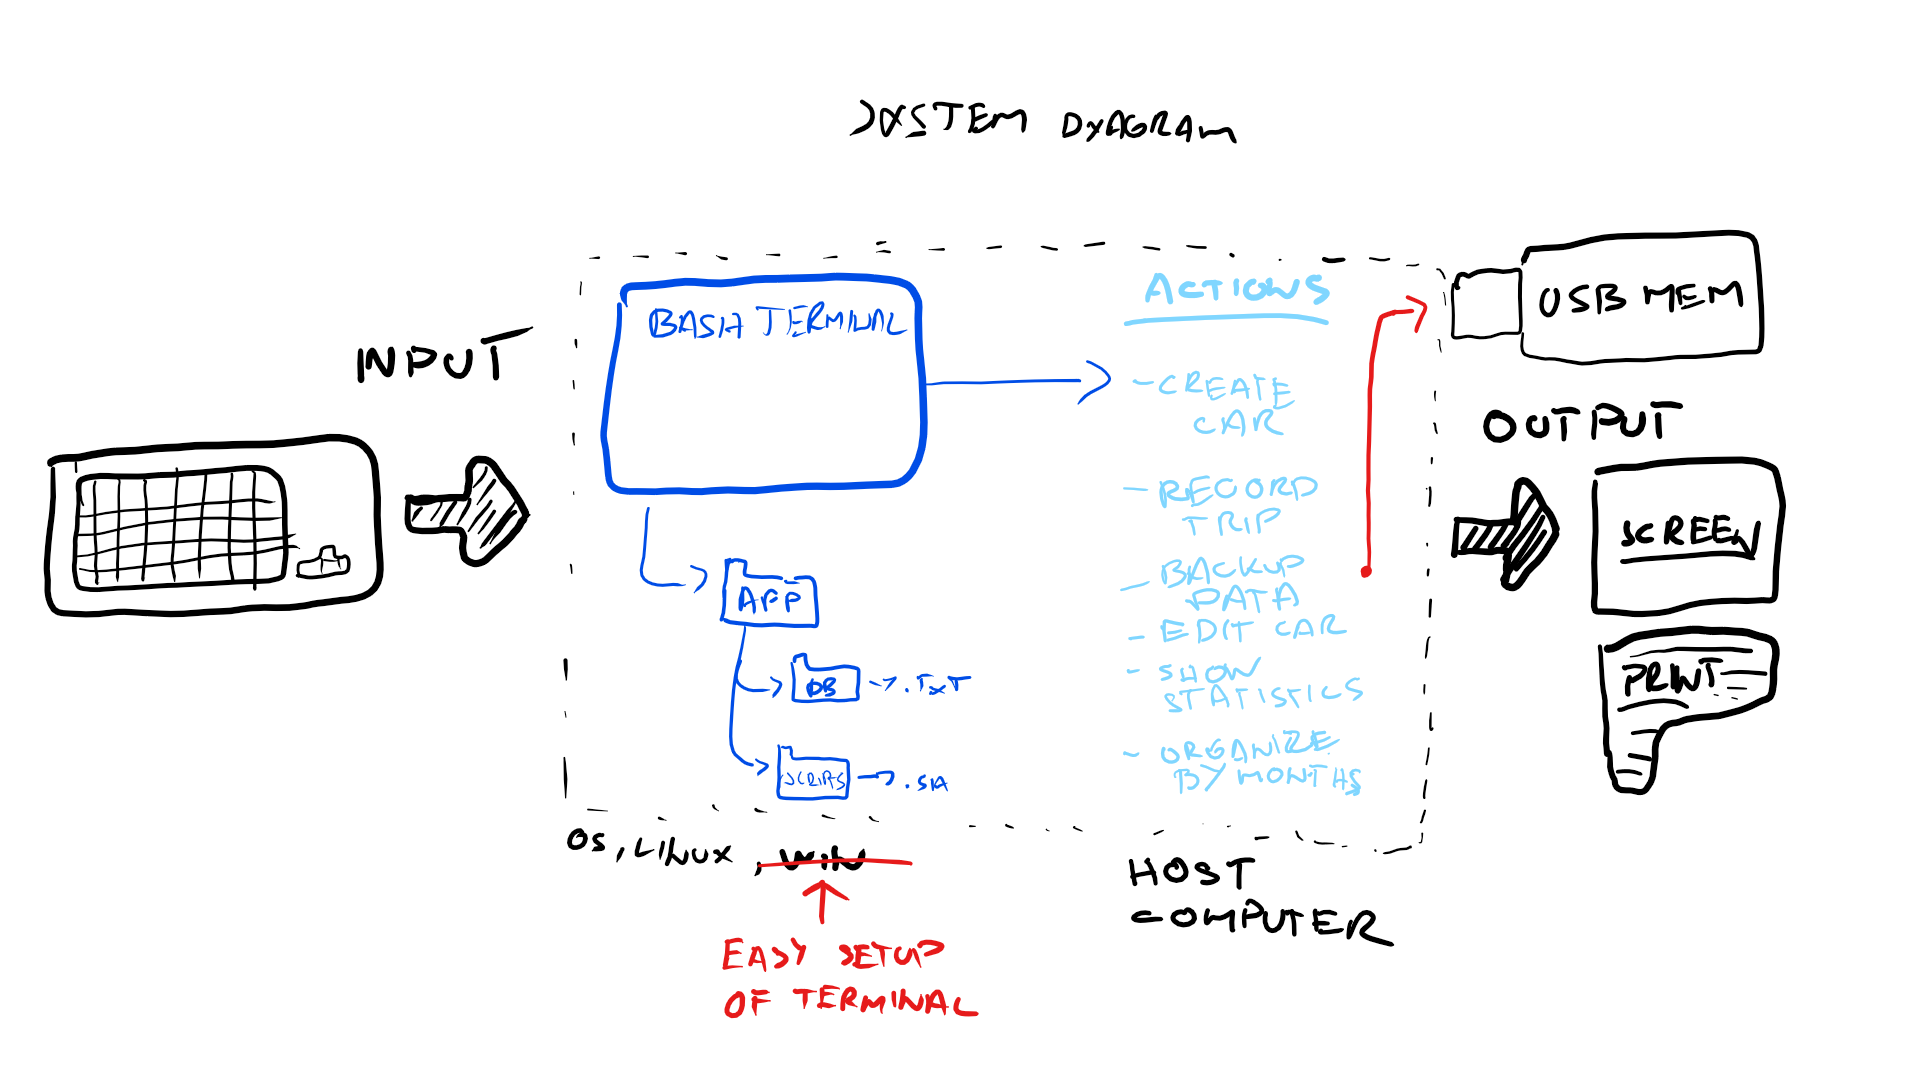 SYSTEM DIAGRAM
INPUT
BASH TERMINAL
APP
DB -> .TXT
SCRIPTS -> .SH
ACTIONS
- CREATE
CAR
- RECORD
TRIP
- BACKUP
DATA
- EDIT CAR
- SHOW
STATISTICS
- ORGANIZE
BY MONTHS
USB MEM
OUTPUT
SCREEN
PRINT
OS, LINUX, WIN
EASY SETUP
OF TERMINAL
HOST
COMPUTER